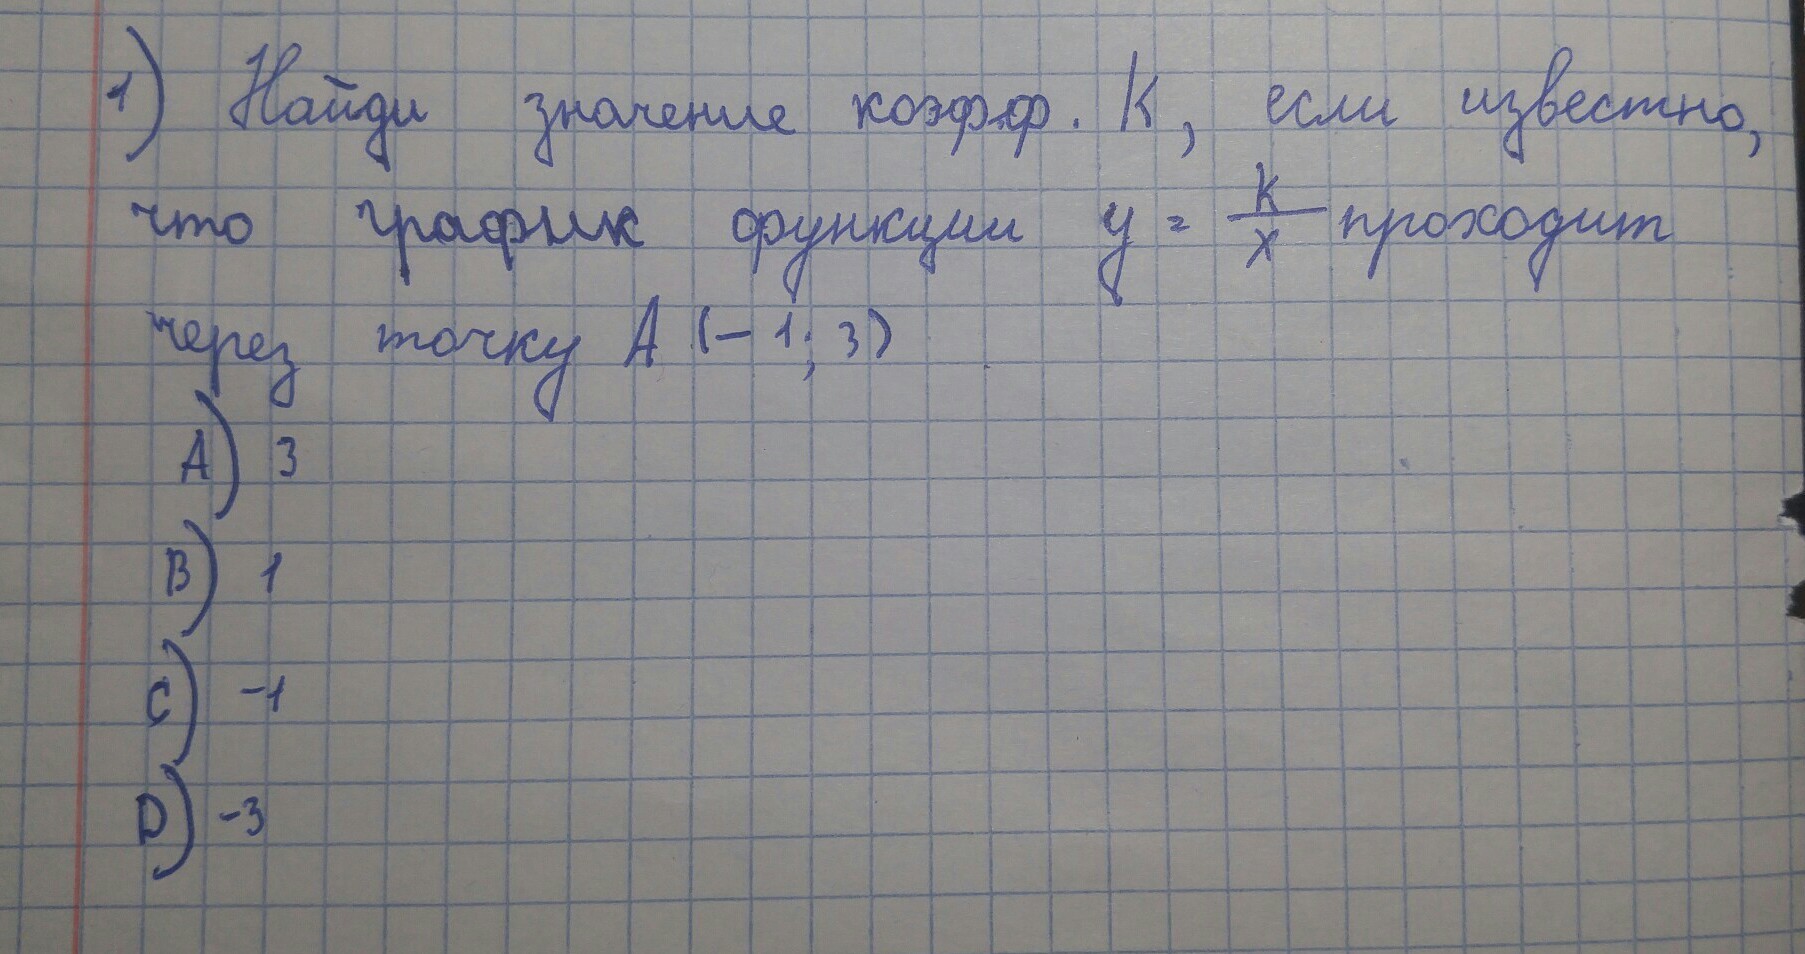 1) Найди значение коэфф. К, если известно,
что график функции y = k/x проходит
через точку А (-1; 3)
A) 3
B) 1
C) -1
D) -3